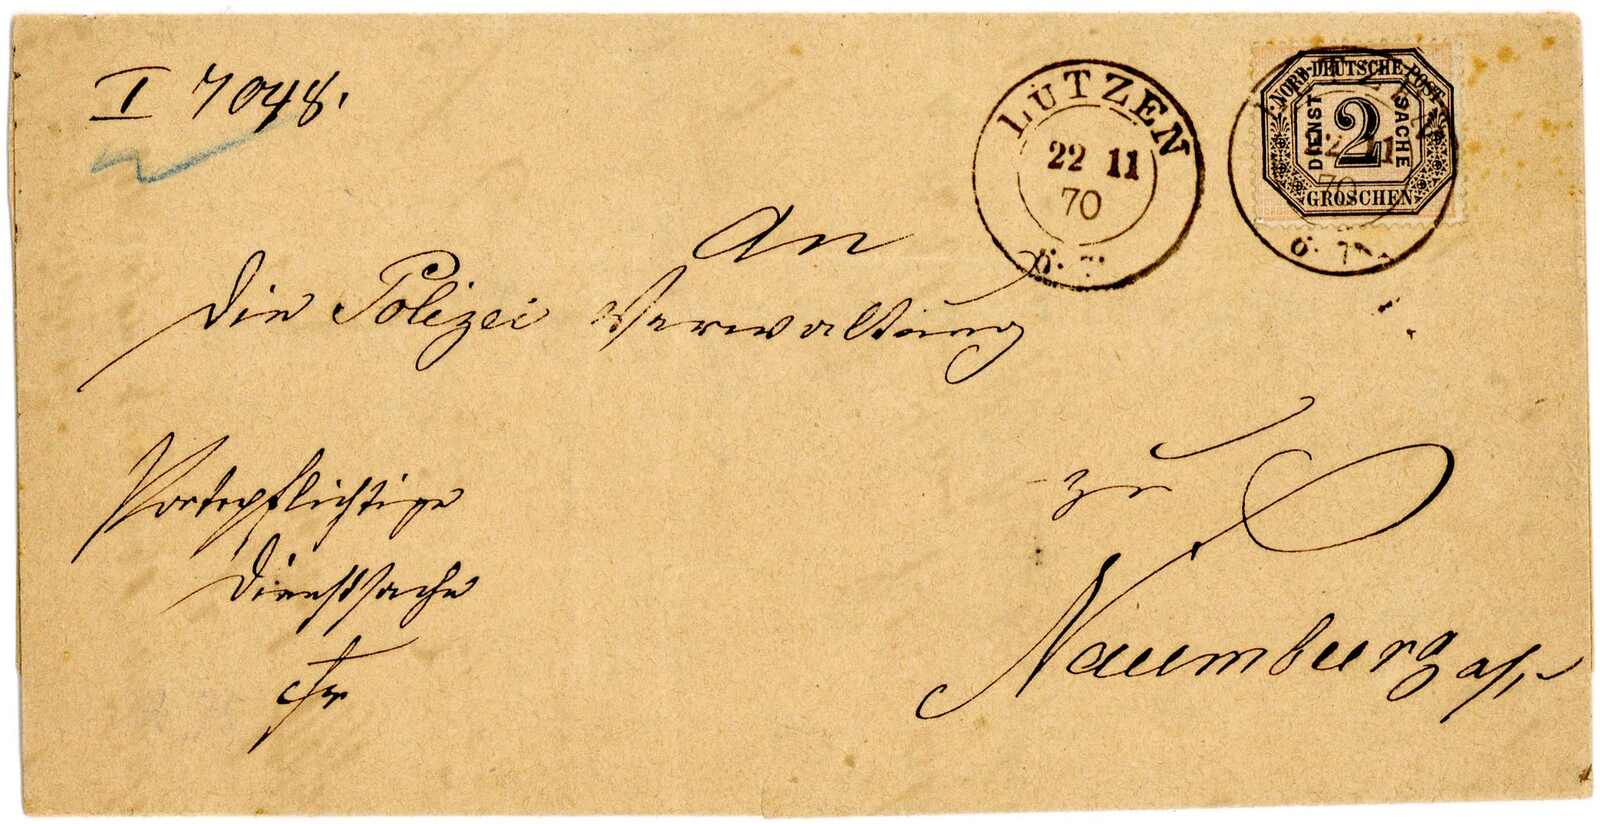 I 7048.
LÜTZEN
22 11
70
NORDDEUTSCHE POST
DIENST 2 SACHE
GROSCHEN
22 11
70
An
die Polizei Verwaltung
zu
Naumburg a/S
Portopflichtige
Dienstsache
fr